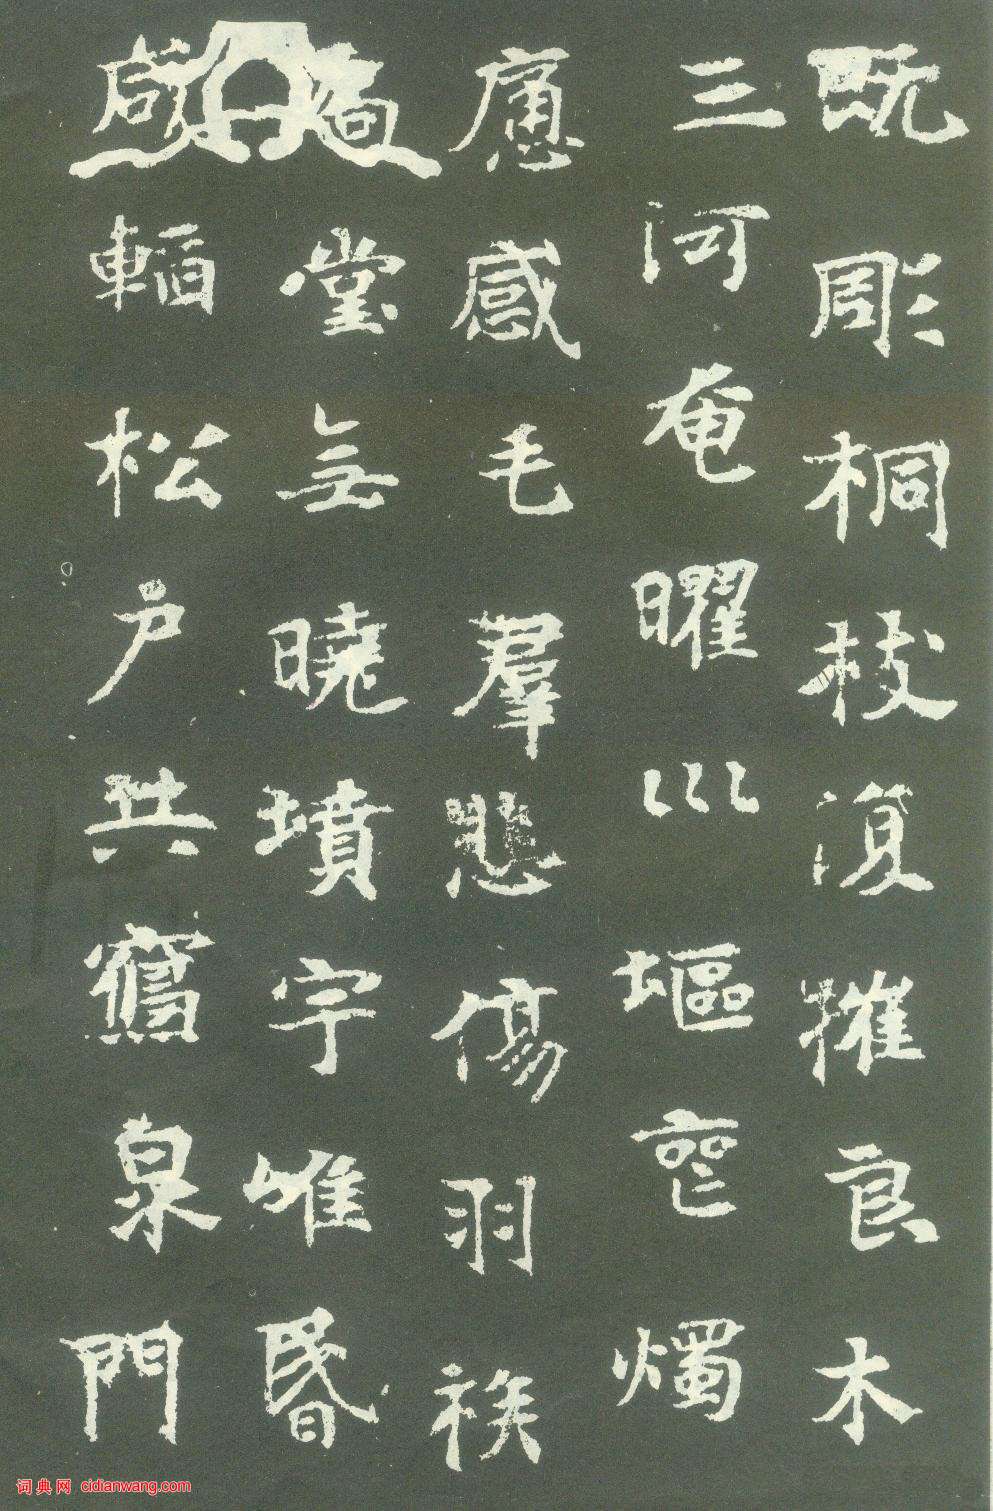 既彫桐枝復摧良木
三河奄曜巛塸燭
痛感毛羣悲傷羽族
堂无曉墳宇唯昏
咸松戶共泉門
词典网 cidianwang.com